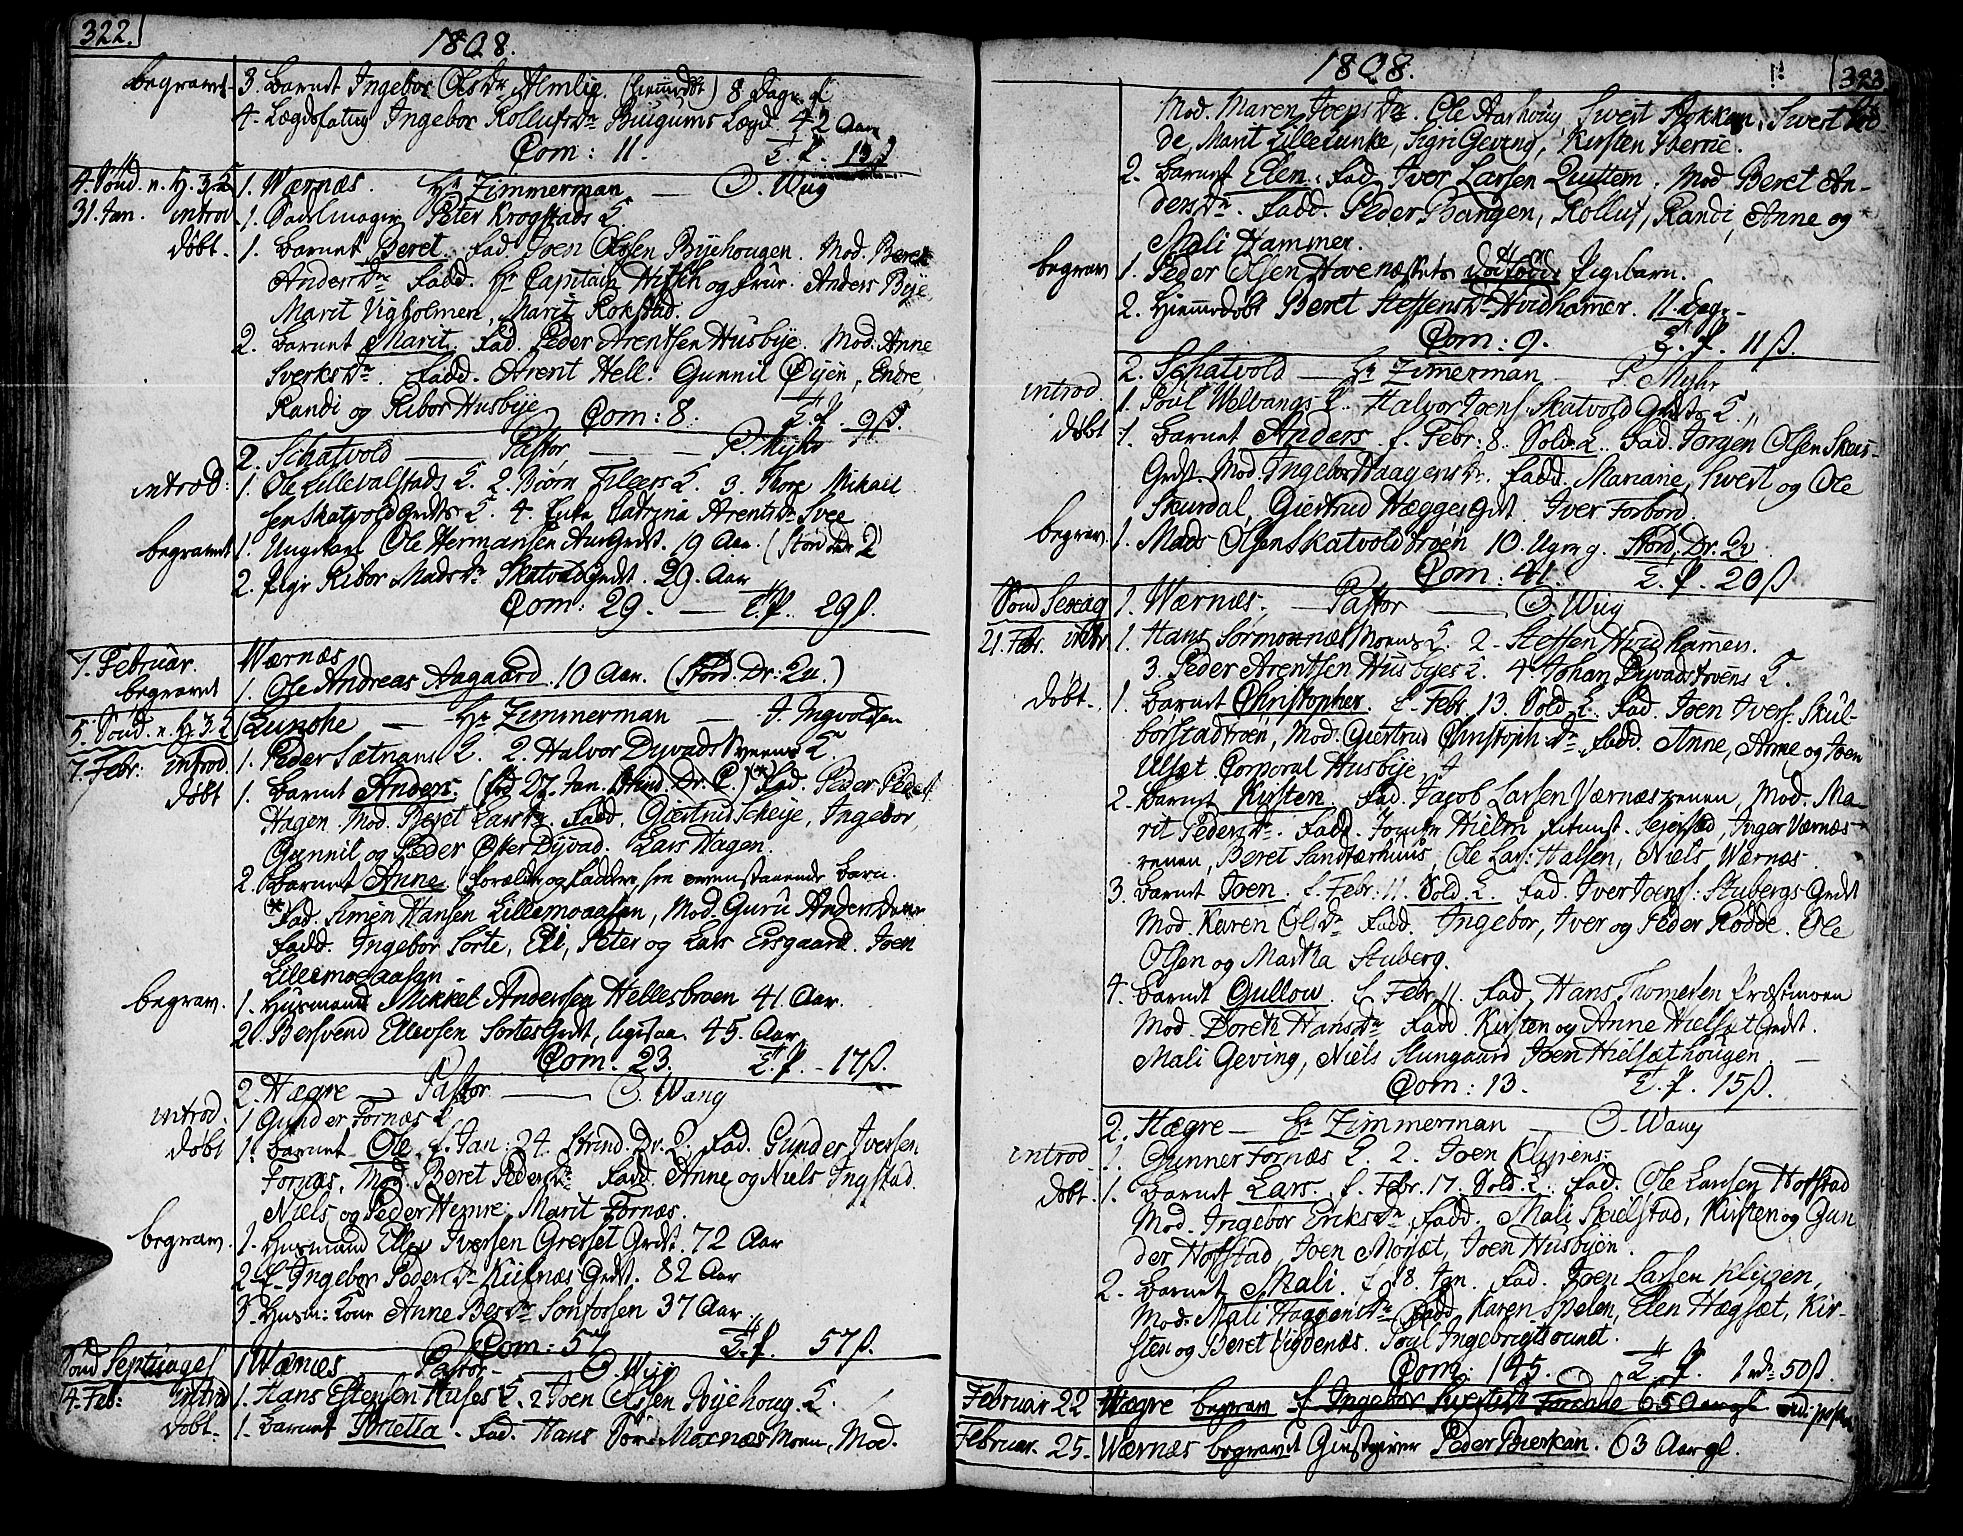 322.
1808.
begravet 3. Barnet Ingebor Olsdr Almlie. (hiemdøbt) 8 Dage gl.
4. Lægdsfatig Ingebor Kollufsdr Buigums Lægd. 42 Aar
Com: 11. T. f. 13 ß
4. Sønd. n. H. 3. K. 1. Wærnæs. Hr Zimmerman — O. Wug
31. Jan. introd 1. Sadelmager Peter Krogstads K.
døbt. 1. Barnet Beret. Fad. Joen Olsen Byehougen. Mod. Beret
Andersdr Fadd. Hr Capitain Hitsch og Frue. Anders Bye,
Marit Vigholmen, Marit Rokstad.
2. Barnet Marit. Fad. Peder Arentsen Husbye. Mod. Anne
Sverksdr. Fadd. Arent Hell. Gunnil Øijen, Endre,
Randi og Ribor Husbye Com: 8. T. f. 9 ß.
2. Schatvold — Pastor — P. Myhr
introd: 1. Ole Lillevalstads K. 2. Biørn Fleers K. 3. Thore Mikael
sen Skatvold Grdts K. 4. Enke Catrina Arentsdr Svee
begravet 1. Ungekarl Ole Hermansen Aune Grdt. 19 Aar. (Stord. Dr. 2
2. Pige Ribor Madsdr Skatvold Grdt. 29. Aar
Com: 29. — T. f. 29 ß.
7. Februar. Wærnæs
begravet 1. Ole Andreas Aagaard. 10 Aar. (Stord. Dr: 2u.)
5. Sønd. n. H. 3. K. 1. Lunche — Hr Zimmerman — J. Ingvoldsen
7. Febr: introd. 1. Peder Sætnans K. 2. Halvor Dyvads K
døbt 1. Barnet Anders. (fød 27. Jan. Strind. Dr. C.) (*) Fad. Peder Peders.
Hagen Mod. Beret Larsdr. Fadd. Giertrud Scheije, Ingebor,
Gunnil og Peder Øster Dyvad. Lars Hagen.
2. Barnet Anne (forældre og faddere, see ovenstaaende Barn.
(*) Fad. Simen Hansen Lillemoaasan, Mod. Guru Anders
Fadd. Ingebor Sorte, Eli, Peter og Lars Ersgaard. Joen
Lillemoaasan.
begrav. 1. Husmand Mikkel Andersen Hellesbroen 41 Aar.
2. Bersvend Ellevsen Sortes Grdt, ligesaa. 45. Aar
Com. 23. T. f. - 17 ß.
2. Hægre — Pastor. — O. Wang
introd. 1 Gunder Fornæs K
døbt 1. Barnet Ole f. Jan: 24. Strind. Dr. 2. Fad. Gunder Iversen
Fornæs, Mod. Beret Pedersdr Fadd. Anne og Niels Ingstad.
Niels og Peder Hemre. Marit Fornæs.
begrav. 1. Husmand Ellev Iversen Gresset Grdt. 72 Aar
2. Ingebor Pedersdr Kiilnæs Grdt. 82 Aar
3. Husm: Kone Anne Bersdr Sonfossen 37 Aar
Com: 57 T. f. 57 ß.
Sønd Septuages 1 Wærnæs Pastor — O. Wug
14. Feb: introd 1. Hans Estensen Huses K. 2 Joen Olsen Byehoug. K.
døbt. 1. Barnet Foretia. Fad. Hans Søndre Moenæs Moen, Mod.
1808.
323
Mod. Maren Joensdr. Ole Aarhoug, Svert Stokkan, Svert Rød
de, Marit Lillelunke, Sigri Geving, Kirsten Berrie.
2. Barnet Elen. Fad. Iver Larsen Quittem. Mod Beret An-
dersdr. Fadd. Peder Bangen, Kolluf, Randi, Anne og
Mali Hammer.
begrav 1. Peder Olsen Havenæssets dødfødde Pigebarn.
2. Hiemedøbt Beret Steffensdr Hvidhamer. 11. Dage -
Com: 9. T. f. 11 ß.
2. Schatvold — Hr Zimerman P. Myhr
introd. 1. Poul Welvangs K. Halvor Joens. Skatvold Grdts K.
døbt 1. Barnet Anders f. Febr: 8. Sold. L. Fad. Jørgen Olsen Skeis-
Grdt. Mod. Ingebor Haagensdr. Fadd. Mariane, Svert og Ole
Skurdal, Giertrud Hægges Grdt. Iver Forbord.
begrav. 1. Mads Olsen Skatvoldtrøen 10. Uger g. Stord. Dr. 2u.
Com: 41. T. f. 20 ß.
Sønd Sexag 1. Wærnæs. — Pastor — O. Wug
21. Febr. introd 1. Hans Sørmonnæs Moens K 2. Steffen Hvidhammen.
3. Peder Arentsen Husbyes K. 4. Johan Dyvadstrøens K.
døbt. 1. Barnet Christopher. f. Febr. 13. Sold. L. Fad. Joen Ivers. Skul-
borstadtrøen, Mod. Giertrud Christoph.dr Fadd. Anne, Anne og Joen
Ulsæt. Corporal Husbye.
2. Barnet Kirsten. Fad. Jacob Larsen Værnæsrenen Mod. Ma-
rit Pedersdr. Fadd. Jomfr Hielm, Sejersted, Inger Værnæs-
renen, Beret Sandfærhuus, Ole Lars: Halsen, Niels Wærnæs.
3. Barnet Joen. f. Febr: 11. Sold. L. Fad. Iver Joens. Stubergs Grdt
Mod. Karen Olsdr Fadd. Ingebor, Iver og Peder Rødde. Ole
Olsen og Martha Stuberg.
4. Barnet Gullow. f. Febr. 11. Fad. Hans Tomesen Præstmoen
Mod. Doreth Hansdr Fadd. Kirsten og Anne Hielsæt Grdt.
Mali Geving, Niels Stungaard Joen Hielsæthougen.
Com: 13. T. f. 15 ß.
2. Hægre — Hr Zimmerman — O. Wang
introd 1. Gunner Fornæs K. 2. Joen Klyens
døbt. 1. Barnet Lars. f. Febr. 17. Sold. L. Fad. Ole Larsen Hoffstad
Mod. Ingebor Eriksdr, Fadd. Mali Skielstad, Kirsten og Gun
der Hoffstad, Joen Moxæt, Joen Husbyen.
2. Barnet Mali. f. 18. Jan. Fad. Joen Larsen Klyjen,
Mod. Mali Haagensdr Fadd Karen Spelen, Elen Hægsæt, Kir-
sten og Beret Vigdenæs. Poul Ingebrigtsrunet.
Com: 145. T. f. 1 rd 50 ß.
Februar 22 Hægre begrav f Ingebor 65 Aar gl
Februar. 25. Wærnæs begravet Giestgiver Peder Bierkan. 63 Aar gl.